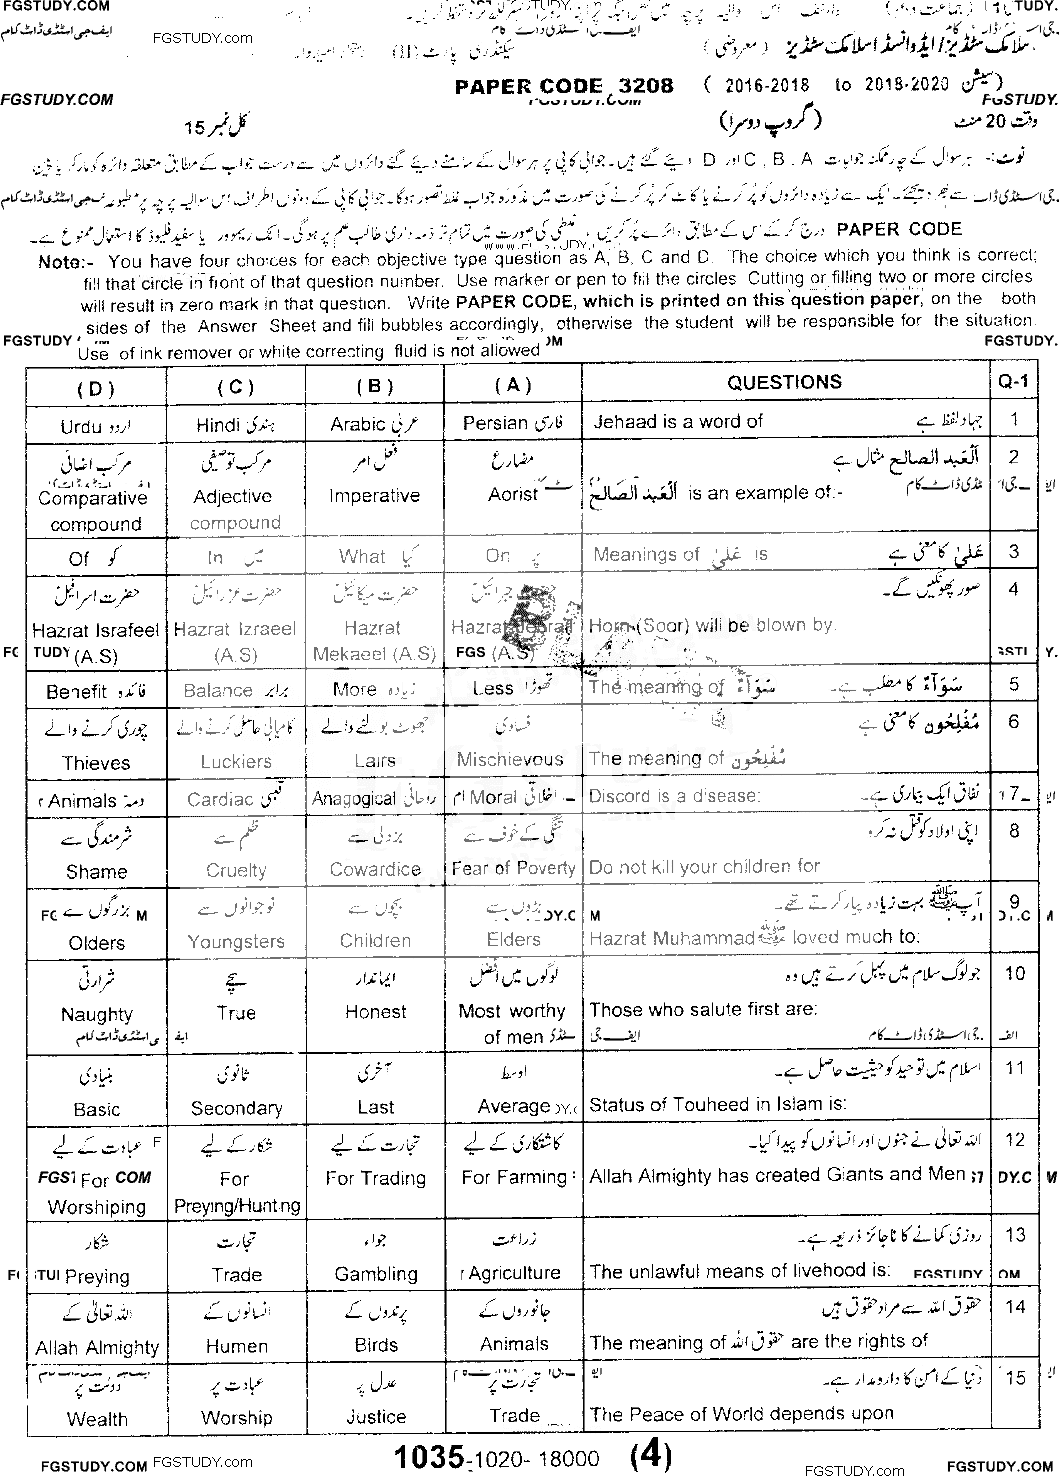 FGSTUDY.COM
ایف جی اسٹڈی ڈاٹ کام
FGSTUDY.com
اسلامک سٹڈیز / ایڈوانسڈ اسلامک سٹڈیز (معروضی)
PAPER CODE 3208 ( 2016-2018 to 2018-2020 سیشن )
FGSTUDY.COM FGSTUDY.
وقت 20 منٹ (گروپ دوسرا) کل نمبر 15
نوٹ:- ہر سوال کے چار ممکنہ جوابات A ، B ، C اور D دیئے گئے ہیں۔ جوابی کاپی پر ہر سوال کے سامنے دیئے گئے دائروں میں سے درست جواب کے مطابق متعلقہ دائرہ کو مارکر یا پین
سے بھر دیجئے۔ ایک سے زیادہ دائروں کو پُر کرنے یا کاٹ کر پُر کرنے کی صورت میں مذکورہ جواب غلط تصور ہوگا۔ جوابی کاپی کے دونوں اطراف اس سوالیہ پرچہ پر مطبوعہ
PAPER CODE درج کر کے اس کے مطابق دائرے پُر کریں، غلطی کی صورت میں تمام تر ذمہ داری طالب علم پر ہوگی۔ انک ریموور یا سفید فلیوڈ کا استعمال ممنوع ہے۔
Note:- You have four choices for each objective type question as A, B, C and D. The choice which you think is correct;
fill that circle in front of that question number. Use marker or pen to fill the circles Cutting or filling two or more circles
will result in zero mark in that question. Write PAPER CODE, which is printed on this question paper, on the both
sides of the Answer Sheet and fill bubbles accordingly, otherwise the student will be responsible for the situation.
FGSTUDY FGSTUDY.
Use of ink remover or white correcting fluid is not allowed
( D ) ( C ) ( B ) ( A ) QUESTIONS Q-1
Urdu اردو Hindi ہندی Arabic عربی Persian فارسی Jehaad is a word of جہاد لفظ ہے 1
مرکب اضافی مرکب توصیفی فعل امر مضارع اَلْعَبْدُ الصَّالِحُ مثال ہے 2
Comparative compound Adjective compound Imperative Aorist اَلْعَبْدُ الصَّالِحُ is an example of:-
Of کو In میں What کیا On پر Meanings of عَلیٰ is عَلیٰ کا معنی ہے 3
حضرت اسرافیل حضرت عزرائیل حضرت میکائیل حضرت جبرائیل صور پھونکیں گے۔ 4
Hazrat Israfeel (A.S) Hazrat Izraeel (A.S) Hazrat Mekaeel (A.S) Hazrat Jebrail (A.S) Horn (Soor) will be blown by.
Benefit فائدہ Balance برابر More زیادہ Less تھوڑا The meaning of سَوَآءٌ سَوَآءٌ کا مطلب ہے۔ 5
چوری کرنے والے کامیابی حاصل کرنے والے جھوٹ بولنے والے فسادی مُفْلِحُون کا معنی ہے 6
Thieves Luckiers Lairs Mischievous The meaning of مُفْلِحُون
Animals Cardiac قلبی Anagogical روحانی Moral اخلاقی Discord is a disease: نفاق ایک بیماری ہے۔ 7
شرمندگی سے ظلم سے بزدلی سے تنگی کے خوف سے اپنی اولاد کو قتل نہ کرو 8
Shame Cruelty Cowardice Fear of Poverty Do not kill your children for
بزرگوں سے نوجوانوں سے بچوں سے بڑوں سے آپ ﷺ بہت زیادہ پیار کرتے تھے۔ 9
Olders Youngsters Children Elders Hazrat Muhammad ﷺ loved much to:
شرارتی سچے ایماندار لوگوں میں افضل جو لوگ سلام میں پہل کرتے ہیں وہ 10
Naughty True Honest Most worthy of men Those who salute first are:
بنیادی ثانوی آخری اوسط اسلام میں توحید کو حیثیت حاصل ہے۔ 11
Basic Secondary Last Average Status of Touheed in Islam is:
عبادت کے لیے شکار کے لیے تجارت کے لیے کاشتکاری کے لیے اللہ تعالیٰ نے جنوں اور انسانوں کو پیدا کیا۔ 12
For Worshiping For Preying/Hunting For Trading For Farming Allah Almighty has created Giants and Men
شکار تجارت جواء زراعت روزی کمانے کا ناجائز ذریعہ ہے۔ 13
Preying Trade Gambling Agriculture The unlawful means of livehood is: FGSTUDY
اللہ تعالیٰ کے انسانوں کے پرندوں کے جانوروں کے حقوق اللہ سے مراد حقوق ہیں 14
Allah Almighty Humen Birds Animals The meaning of حقوق اللہ are the rights of
دولت پر عبادت پر عدل پر تجارت پر دنیا کے امن کا دارومدار ہے۔ 15
Wealth Worship Justice Trade The Peace of World depends upon
1035-1020- 18000 (4)
FGSTUDY.COM FGSTUDY.com FGSTUDY.com FGSTUDY.COM